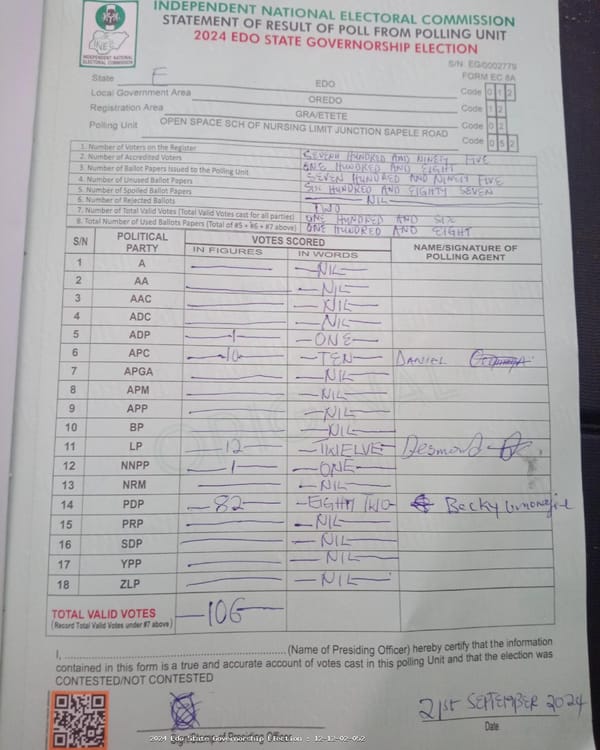 INDEPENDENT NATIONAL ELECTORAL COMMISSION
STATEMENT OF RESULT OF POLL FROM POLLING UNIT
2024 EDO STATE GOVERNORSHIP ELECTION
INEC
INDEPENDENT NATIONAL
ELECTORAL COMMISSION
S/N: EG/0002779
FORM EC 8A
State E EDO
Local Government Area OREDO Code 0 1 2
Registration Area GRA/ETETE Code 1 2
Polling Unit OPEN SPACE SCH OF NURSING LIMIT JUNCTION SAPELE ROAD Code 0 2
Code 0 5 2
1. Number of Voters on the Register SEVENH HUNDRED AND NINETY FIVE
2. Number of Accredited Voters ONE HUNDRED AND EIGHT
3. Number of Ballot Papers Issued to the Polling Unit SEVEN HUNDRED AND NINETY FIVE
4. Number of Unused Ballot Papers SIX HUNDRED AND EIGHTY SEVEN
5. Number of Spoiled Ballot Papers NIL
6. Number of Rejected Ballots TWO
7. Number of Total Valid Votes (Total Valid Votes cast for all parties) ONE HUNDRED AND SIX
8. Total Number of Used Ballots Papers (Total of #5 + #6 + #7 above) ONE HUNDRED AND EIGHT
S/N POLITICAL PARTY VOTES SCORED NAME/SIGNATURE OF POLLING AGENT
IN FIGURES IN WORDS
1 A NIL
2 AA NIL
3 AAC NIL
4 ADC NIL
5 ADP 1 ONE
6 APC 10 TEN DANIEL
7 APGA NIL
8 APM NIL
9 APP NIL
10 BP NIL
11 LP 12 TWELVE Desmond
12 NNPP 1 ONE
13 NRM NIL
14 PDP 82 EIGHTY TWO Becky
15 PRP NIL
16 SDP NIL
17 YPP NIL
18 ZLP NIL
ORIGINAL
TOTAL VALID VOTES 106
(Record Total Valid Votes under #7 above)
I, (Name of Presiding Officer) hereby certify that the information
contained in this form is a true and accurate account of votes cast in this polling Unit and that the election was
CONTESTED/NOT CONTESTED
21ST SEPTEMBER 2024
Signature of Presiding Officer Date
2024 Edo State Governorship Election : 12-12-02-052